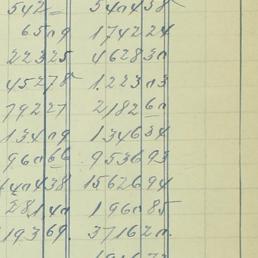 542 — 540438
6509 174224
22325 462830
45278 122303
79227 218260
13409 134634
96066 953693
140438 1562694
28140 196085
119369. 371620.